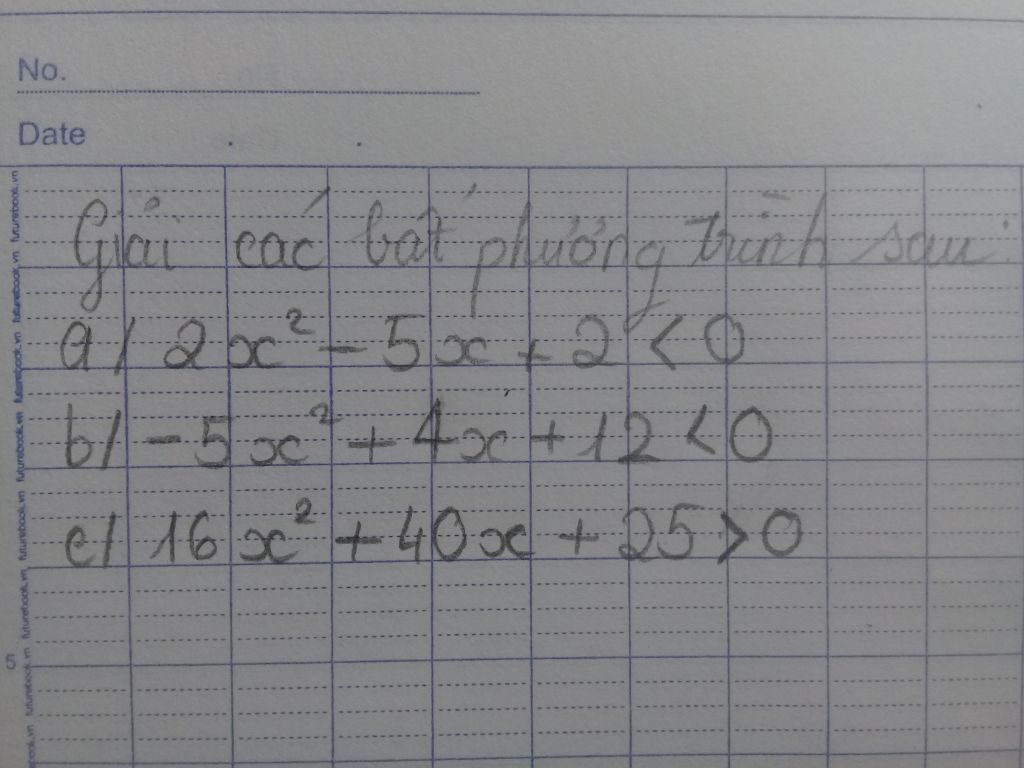 No.
Date
Giải các bất phương trình sau:
a/ 2x² - 5x + 2 < 0
b/ -5x² + 4x + 12 < 0
c/ 16x² + 40x + 25 > 0
5
futurebook.vn futurebook.vn futurebook.vn futurebook.vn futurebook.vn futurebook.vn futurebook.vn